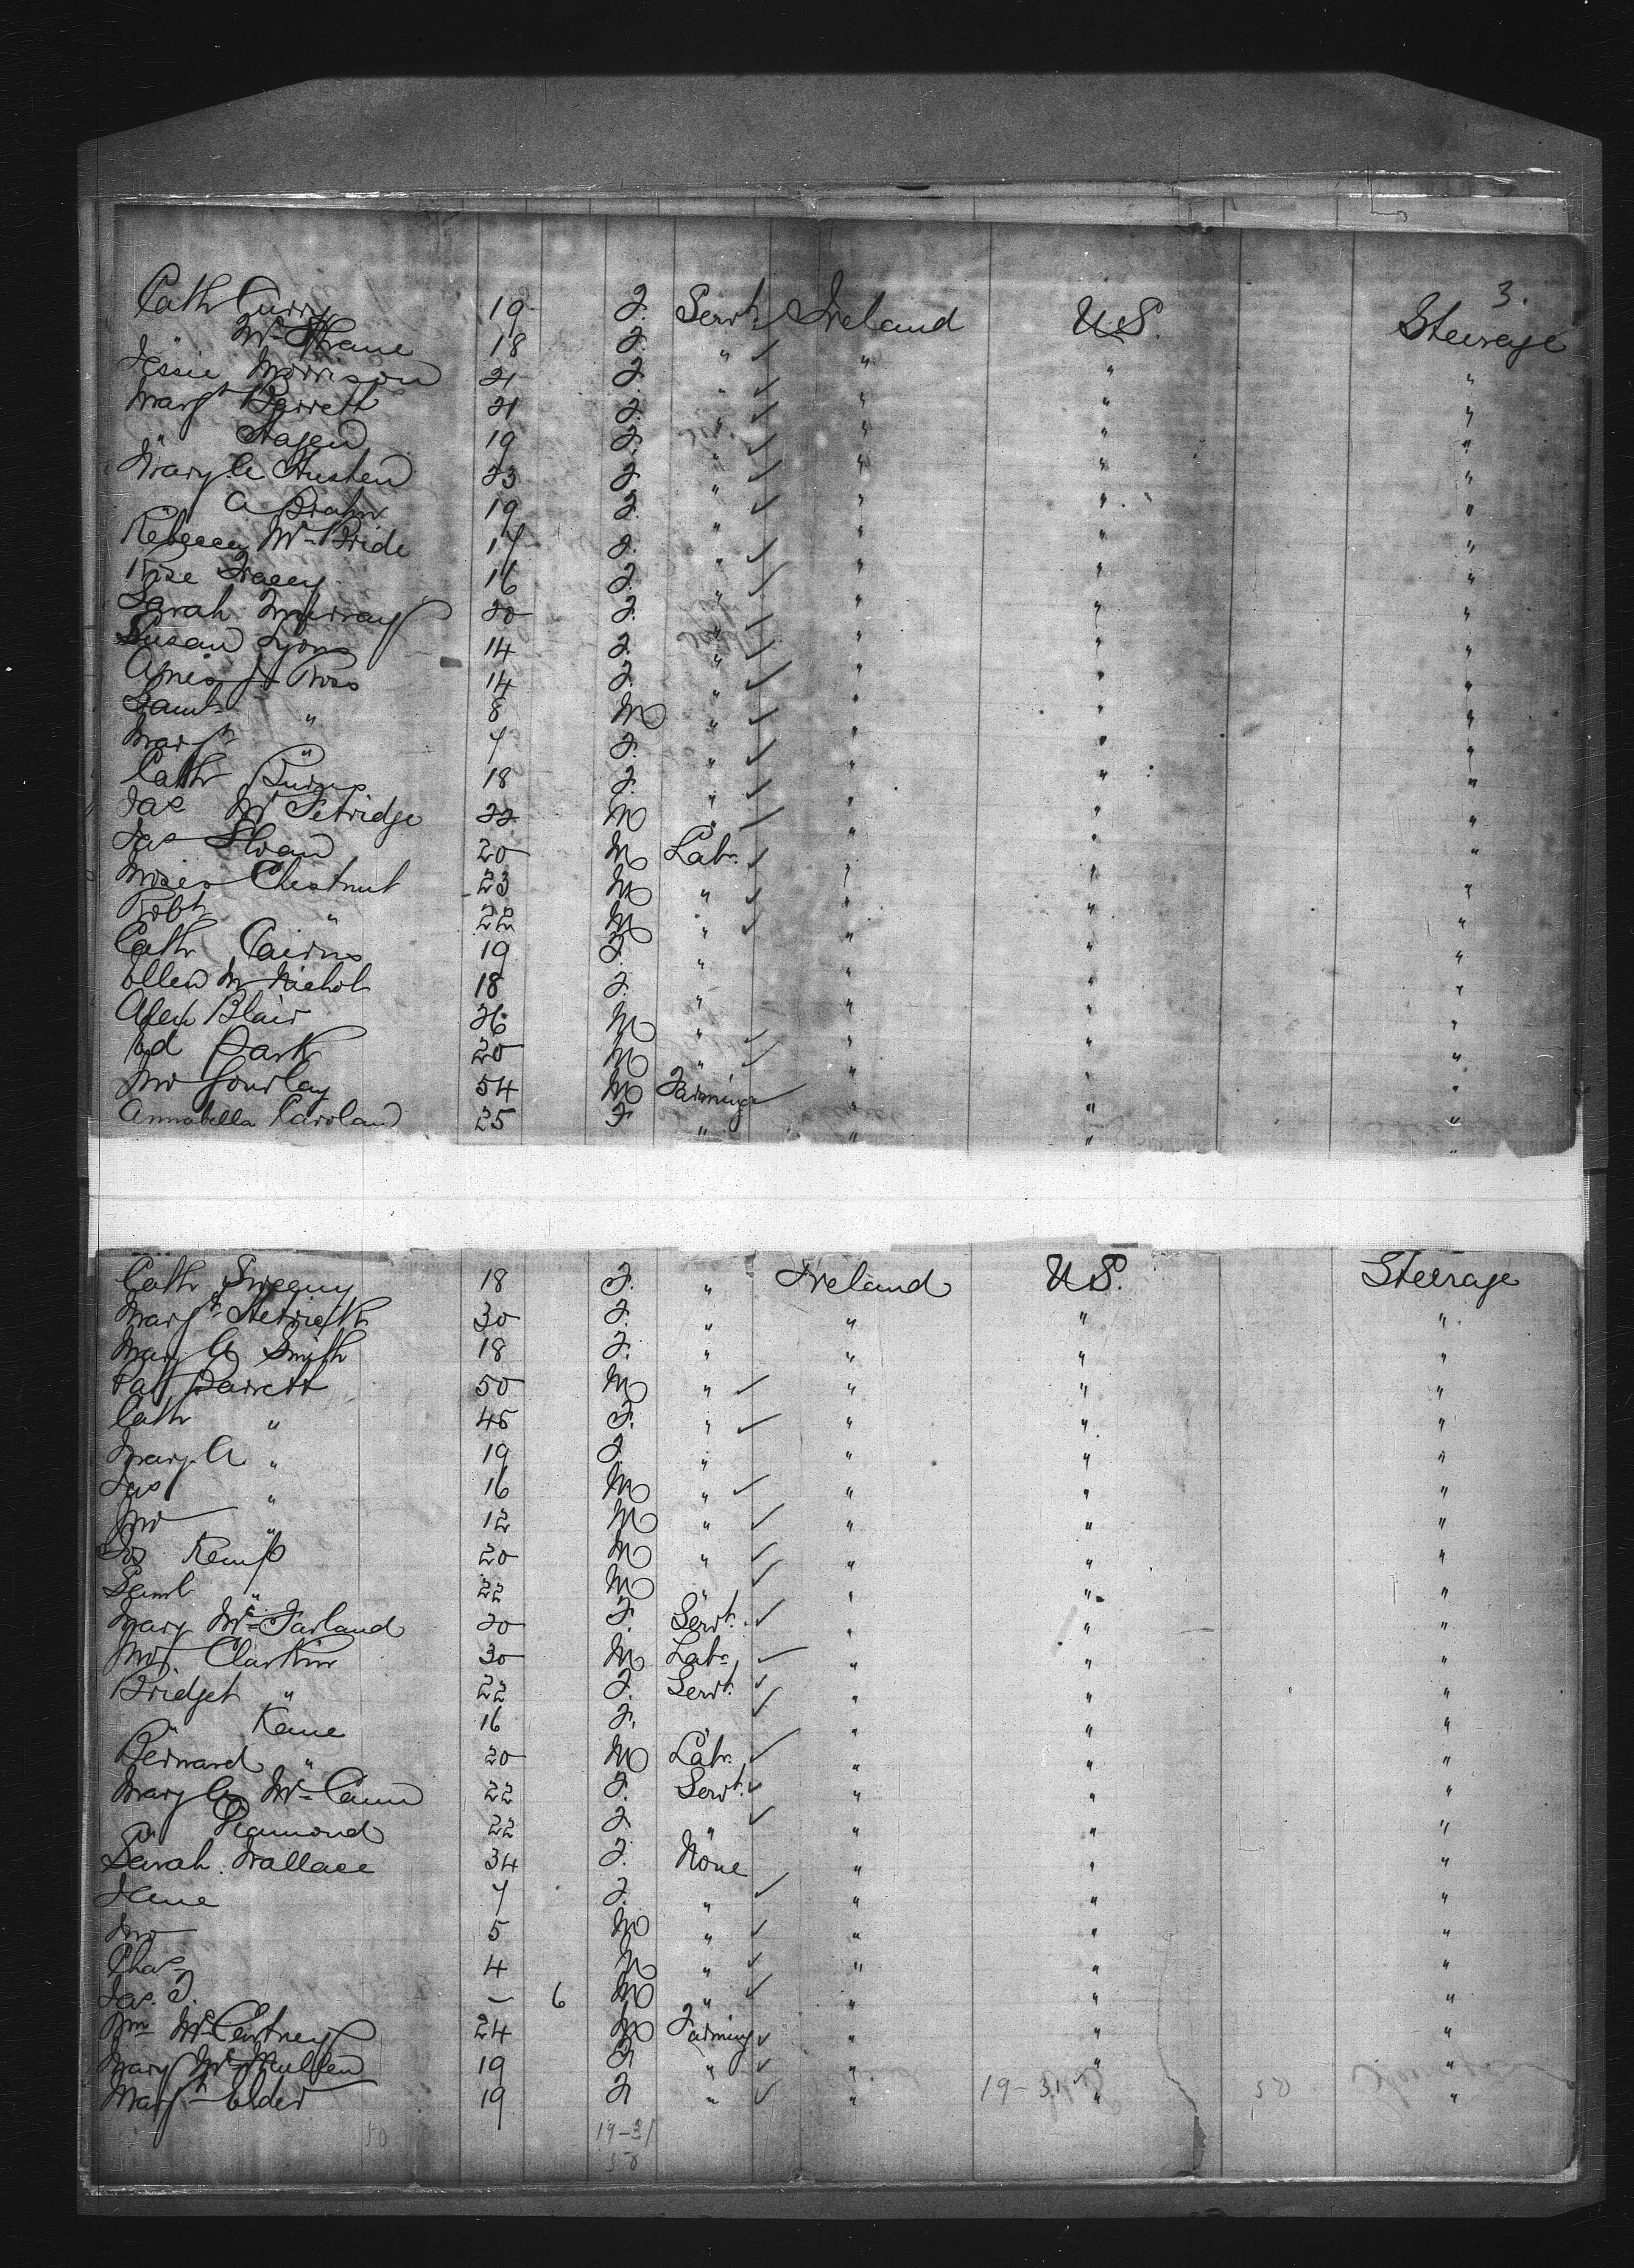 3.
Cath Curry 19 F. Servt. Ireland U.S. Steerage
" McShane 18 F. " " " "
Jessie Morrison 21 F. " " " "
Margt Barrett 21 F. " " " "
" Hagen 19 F. " " " "
Mary A Austen 23 F. " " " "
" A 19 F. " " " "
Rebecca McBride 17 F. " " " "
Rose Tracey 16 F. " " " "
Sarah Murray 20 F. " " " "
Susan Lyons 14 F. " " " "
Agnes J Ross 14 F. " " " "
Saml " 8 M " " " "
Margt " 7 F. " " " "
Cath Burns 18 F. " " " "
Jas McFetridge 22 M " " " "
Jas Sloan 20 M Labr. " " "
Moses Chestnut 23 M " " " "
Robt " 22 M " " " "
Cath Cairns 19 F. " " " "
Ellen McNichol 18 F. " " " "
Alex Blair 26 M " " " "
Ed Park 20 M " " " "
Jno Gourlay 54 M Farming " " "
Annabella Carolan 25 F " " " "
Cath Sweeny 18 F. " Ireland U.S. Steerage
Margt 30 F. " " " "
Mary A Smith 18 F. " " " "
Pat Barrett 50 M " " " "
Cath " 45 F. " " " "
Mary A " 19 F. " " " "
Jas " 16 M " " " "
Jno " 12 M " " " "
Jos Kemp 20 M " " " "
Saml " 22 M " " " "
Mary McFarland 20 F. Servt. " " "
Jno Clarkin 30 M Labr. " " "
Bridget " 22 F. Servt. " " "
" Kane 16 F. " " "
Bernard " 20 M Labr. " " "
Mary A McCann 22 F. Servt. " " "
" Diamond 22 F " " " "
Sarah Wallace 34 F. None " " "
Jane 7 F. " " " "
Jno 5 M " " " "
Chas 4 M " " " "
Jas. T. – 6 M " " " "
Wm McCartney 24 M Farming " " "
Mary McMullen 19 F " " " "
Margt Elder 19 F " " " "
19-31 50
50 19-31
50